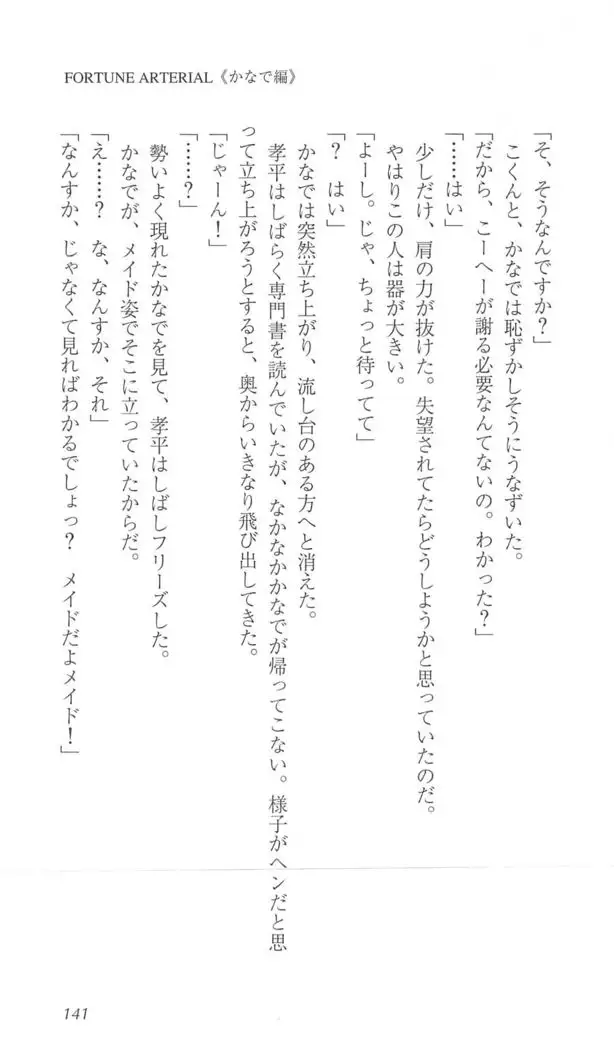 FORTUNE ARTERIAL《かなで編》
「そ、そうなんですか？」
こくんと、かなでは恥ずかしそうにうなずいた。
「だから、こーへーが謝る必要なんてないの。わかった？」
「……はい」
少しだけ、肩の力が抜けた。失望されてたらどうしようかと思っていたのだ。
やはりこの人は器が大きい。
「よーし。じゃ、ちょっと待ってて」
「？　はい」
かなでは突然立ち上がり、流し台のある方へと消えた。
孝平はしばらく専門書を読んでいたが、なかなかかなでが帰ってこない。様子がヘンだと思
って立ち上がろうとすると、奥からいきなり飛び出してきた。
「じゃーん！」
「……？」
勢いよく現れたかなでを見て、孝平はしばしフリーズした。
かなでが、メイド姿でそこに立っていたからだ。
「え……？　な、なんすか、それ」
「なんすか、じゃなくて見ればわかるでしょっ？　メイドだよメイド！」
141